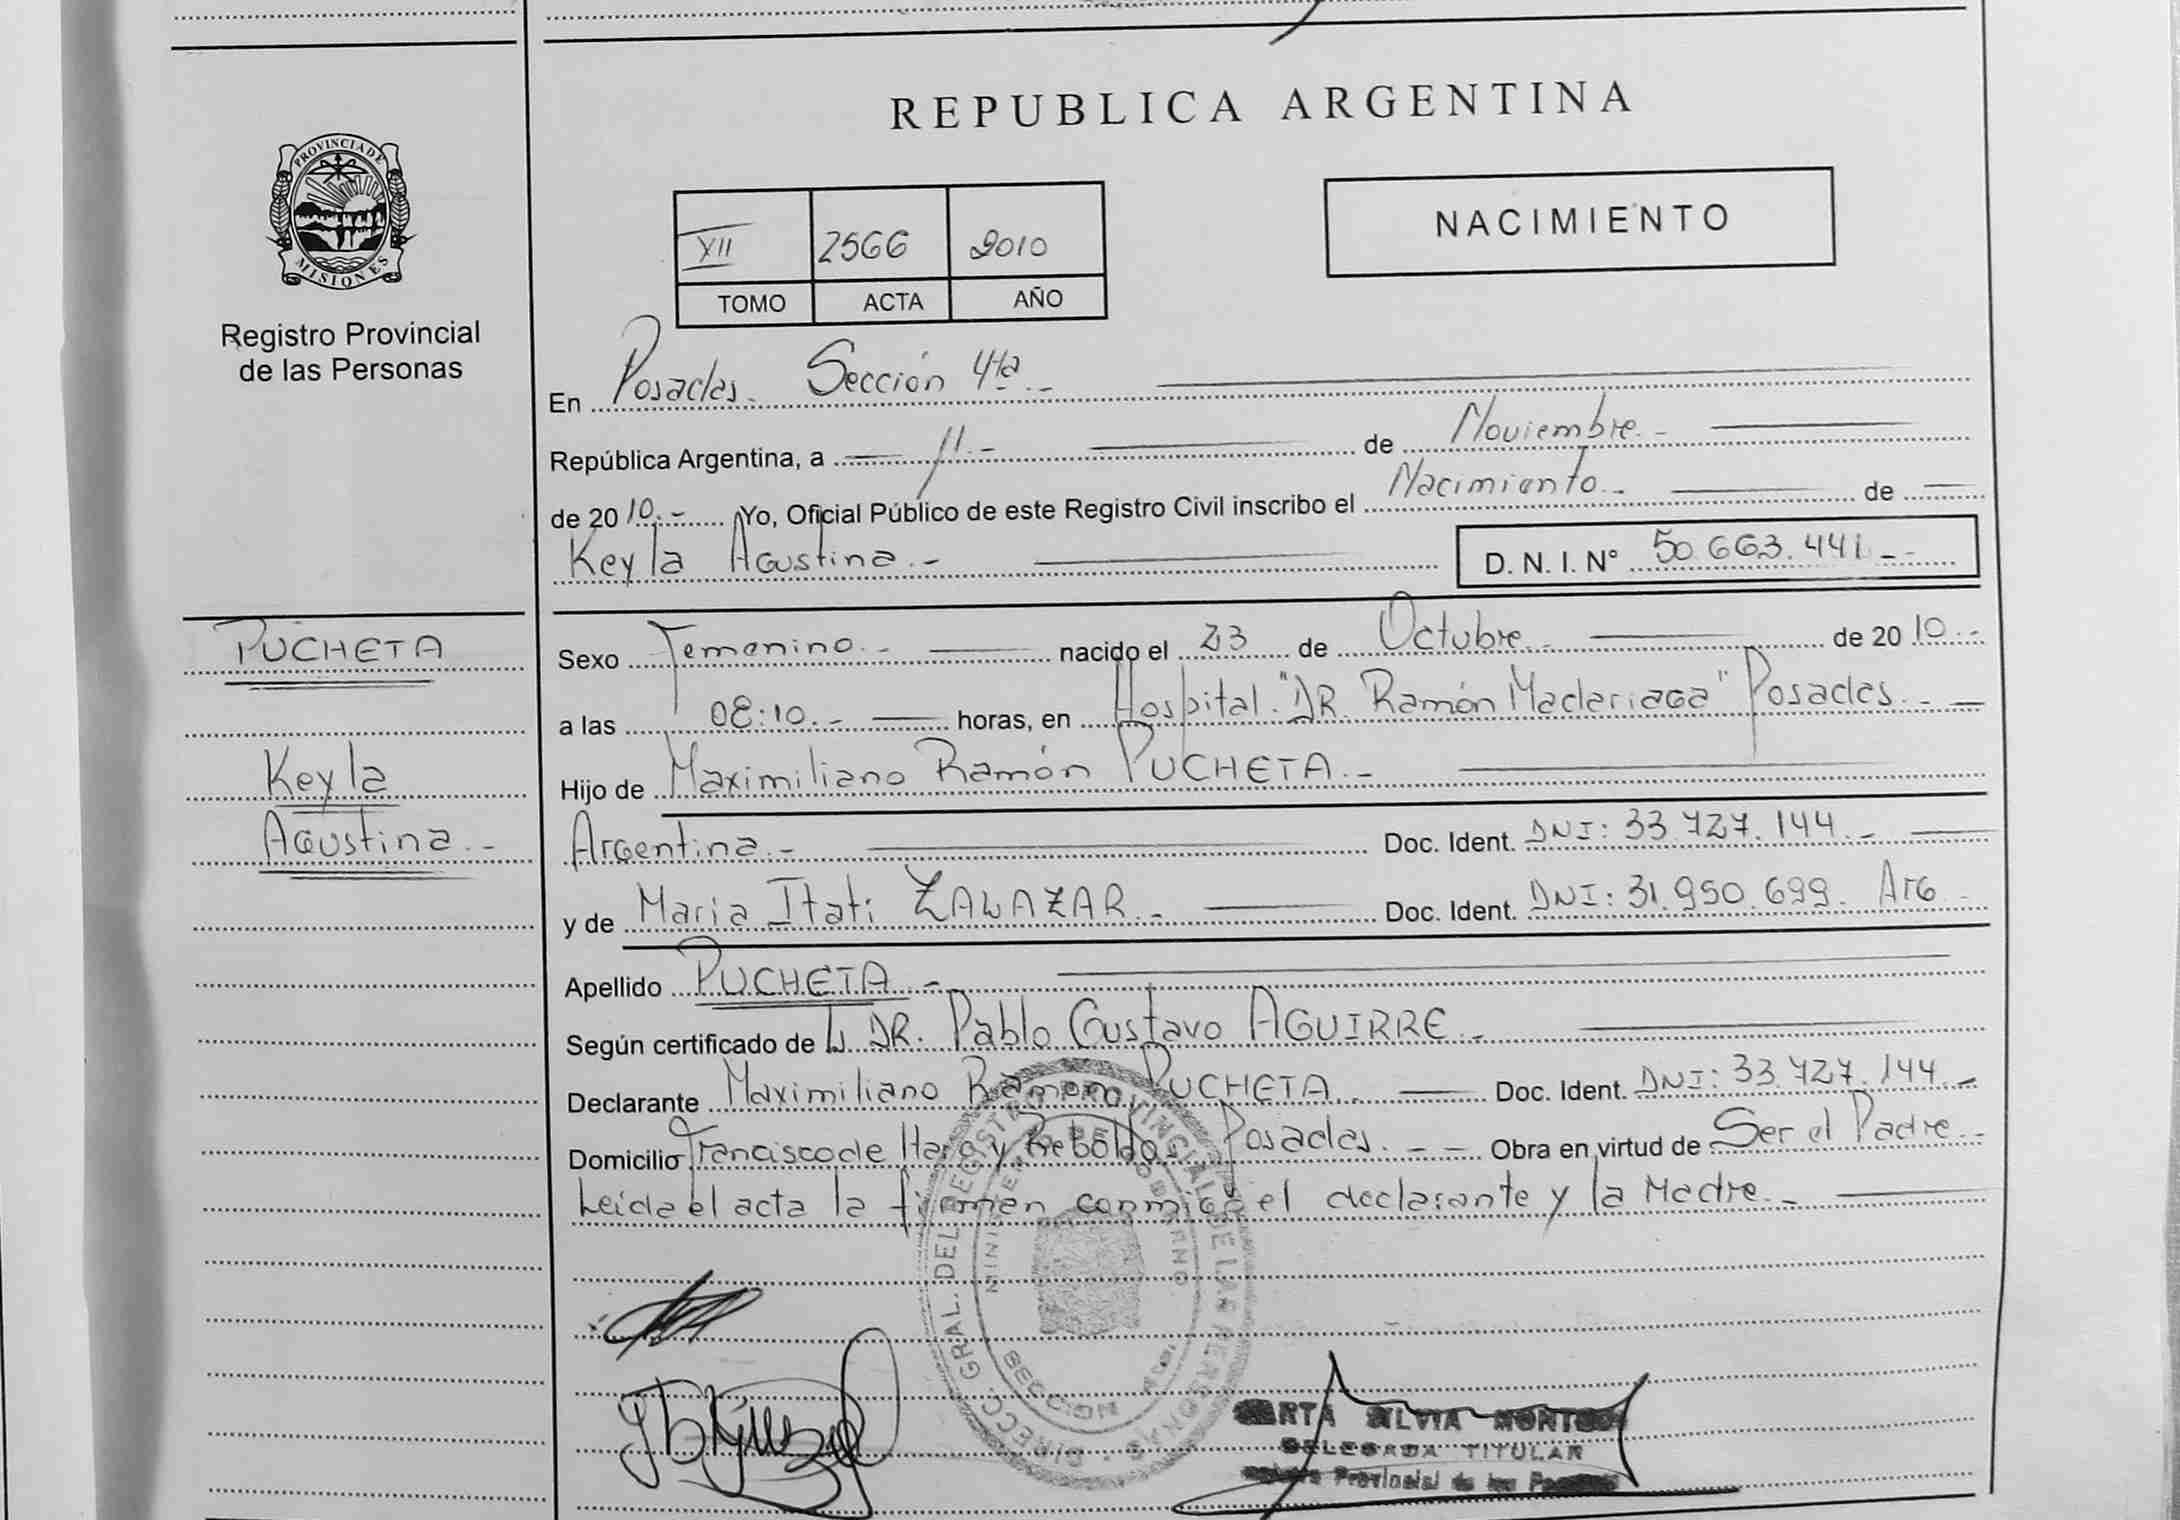 REPUBLICA ARGENTINA
PROVINCIA DE
MISIONES
Registro Provincial
de las Personas
XII 2566 2010
TOMO ACTA AÑO
NACIMIENTO
En Posadas. Sección 4ta.-
República Argentina, a 11.- de Noviembre.-
de 2010.- Yo, Oficial Público de este Registro Civil inscribo el Nacimiento.- de
Keyla Agustina.- D. N. I. N° 50.663.441.-
PUCHETA
Keyla
Agustina.-
Sexo Femenino.- nacido el 23 de Octubre.- de 2010.-
a las 08:10.- horas, en Hospital "DR. Ramón Madariaga" Posadas.-
Hijo de Maximiliano Ramón PUCHETA.-
Argentina.- Doc. Ident. DNI: 33.727.144.-
y de Maria Itati ZALAZAR.- Doc. Ident. DNI: 31.950.699. Arg.-
Apellido PUCHETA.-
Según certificado de L. DR. Pablo Gustavo AGUIRRE.-
Declarante Maximiliano Ramón PUCHETA. Doc. Ident. DNI: 33.727.144.-
Domicilio Francisco de Haro y Posadas.- Obra en virtud de Ser el Padre.-
Leida el acta la firman conmigo el declarante y la Madre.-
DIRECC. GRAL. DEL REGISTRO PROVINCIAL DE LAS PERSONAS
SILVIA
DELEGADA TITULAR
Provincial de las